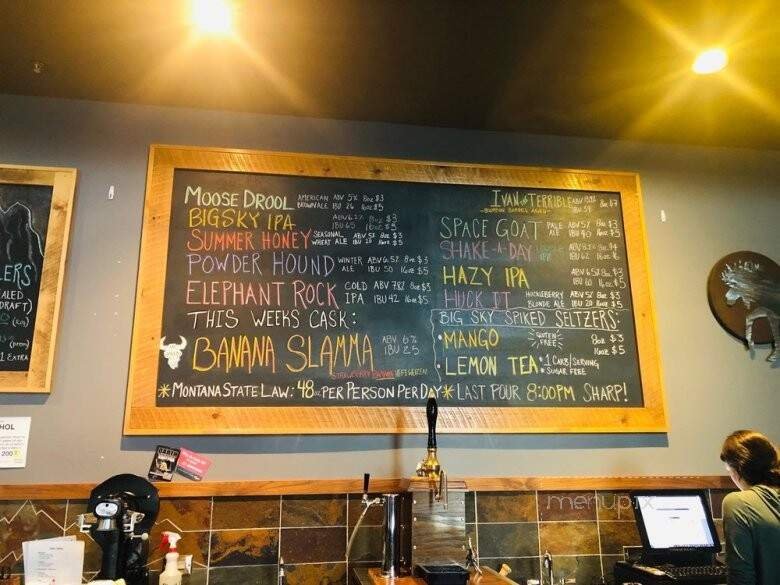 MOOSE DROOL AMERICAN ABV 5% 8oz $3
BROWN ALE IBU 26 16oz $5
BIG SKY IPA ABV 6.2% 8oz $3
IBU 65 16oz $5
SUMMER HONEY SEASONAL ABV 5% 8oz $3
WHEAT ALE IBU 20 16oz $5
POWDER HOUND WINTER ABV 6.5% 8oz $3
ALE IBU 50 16oz $5
ELEPHANT ROCK COLD ABV 7.8% 8oz $3
IPA IBU 42 16oz $5
THIS WEEKS CASK:
BANANA SLAMMA ABV 6%
IBU 25
STRAWBERRY BANANA HEFEWEIZEN
IVAN THE TERRIBLE ABV
BOURBON BARREL AGED
SPACE GOAT PALE ABV 5% 8oz $3
ALE IBU 40 16oz $5
SHAKE-A-DAY
IPA IBU 62
HAZY IPA ABV 6.5% 8oz $3
IBU 60 16oz $5
HUCK IT HUCKLEBERRY ABV 5% 8oz $3
BLONDE ALE IBU 20 16oz $5
BIG SKY SPIKED SELTZERS:
• MANGO GLUTEN FREE 8oz $3
16oz $5
• LEMON TEA * 1 CARB/SERVING
* SUGAR FREE
* MONTANA STATE LAW: 48oz PER PERSON PER DAY * LAST POUR 8:00PM SHARP!
LERS
DRAFT)
1 EXTRA
HOL
200
menupix